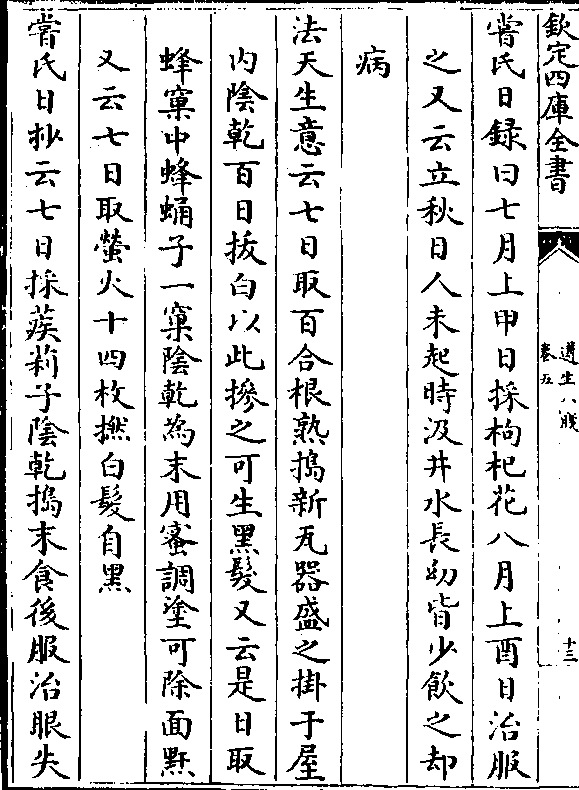 欽定四庫全書
遵生八牋
卷五
十三
常氏日録曰七月上甲日採枸杞花八月上酉日治服
之又云立秋日人未起時汲井水長幼皆少飲之却
病
法天生意云七日取百合根熟搗新瓦器盛之掛于屋
内陰乾百日拔白以此摻之可生黑髮又云是日取
蜂窠中蜂蛹子一窠陰乾為末用蜜調塗可除面䵟
又云七日取螢火十四枚撚白髮自黑
常氏日抄云七日採蒺莉子陰乾搗末食後服治眼失